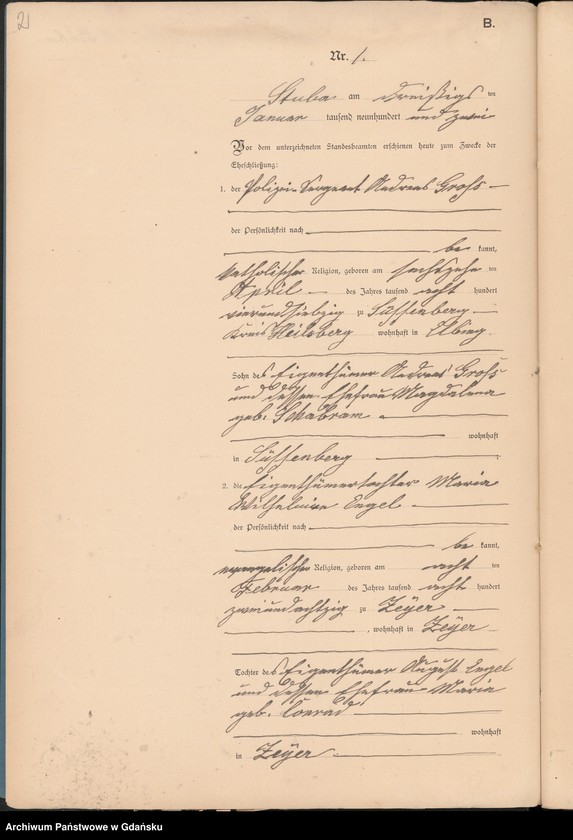 21
B.
Nr. 1.
Stuba am dreißigsten
Januar tausend neunhundert und zwei
Vor dem unterzeichneten Standesbeamten erschienen heute zum Zwecke der
Eheschließung:
1. der Polizei-Sergeant Andreas Groß
der Persönlichkeit nach
be kannt,
katholischer Religion, geboren am sechszehn ten
April des Jahres tausend acht hundert
vierundsiebzig zu Süssenberg
Kreis Heilsberg wohnhaft in Elbing
Sohn des Eigenthümer Andreas Groß
und dessen Ehefrau Magdalena
geb. Schabram
wohnhaft
in Süssenberg
2. die Eigenthümertochter Maria
Wilhelmine Engel
der Persönlichkeit nach
be kannt,
evangelischer Religion, geboren am acht ten
Februar des Jahres tausend acht hundert
zweiundachtzig zu Zeyer
, wohnhaft in Zeyer
Tochter des Eigenthümer August Engel
und dessen Ehefrau Maria
geb. Conrad
wohnhaft
in Zeyer
Archiwum Państwowe w Gdańsku